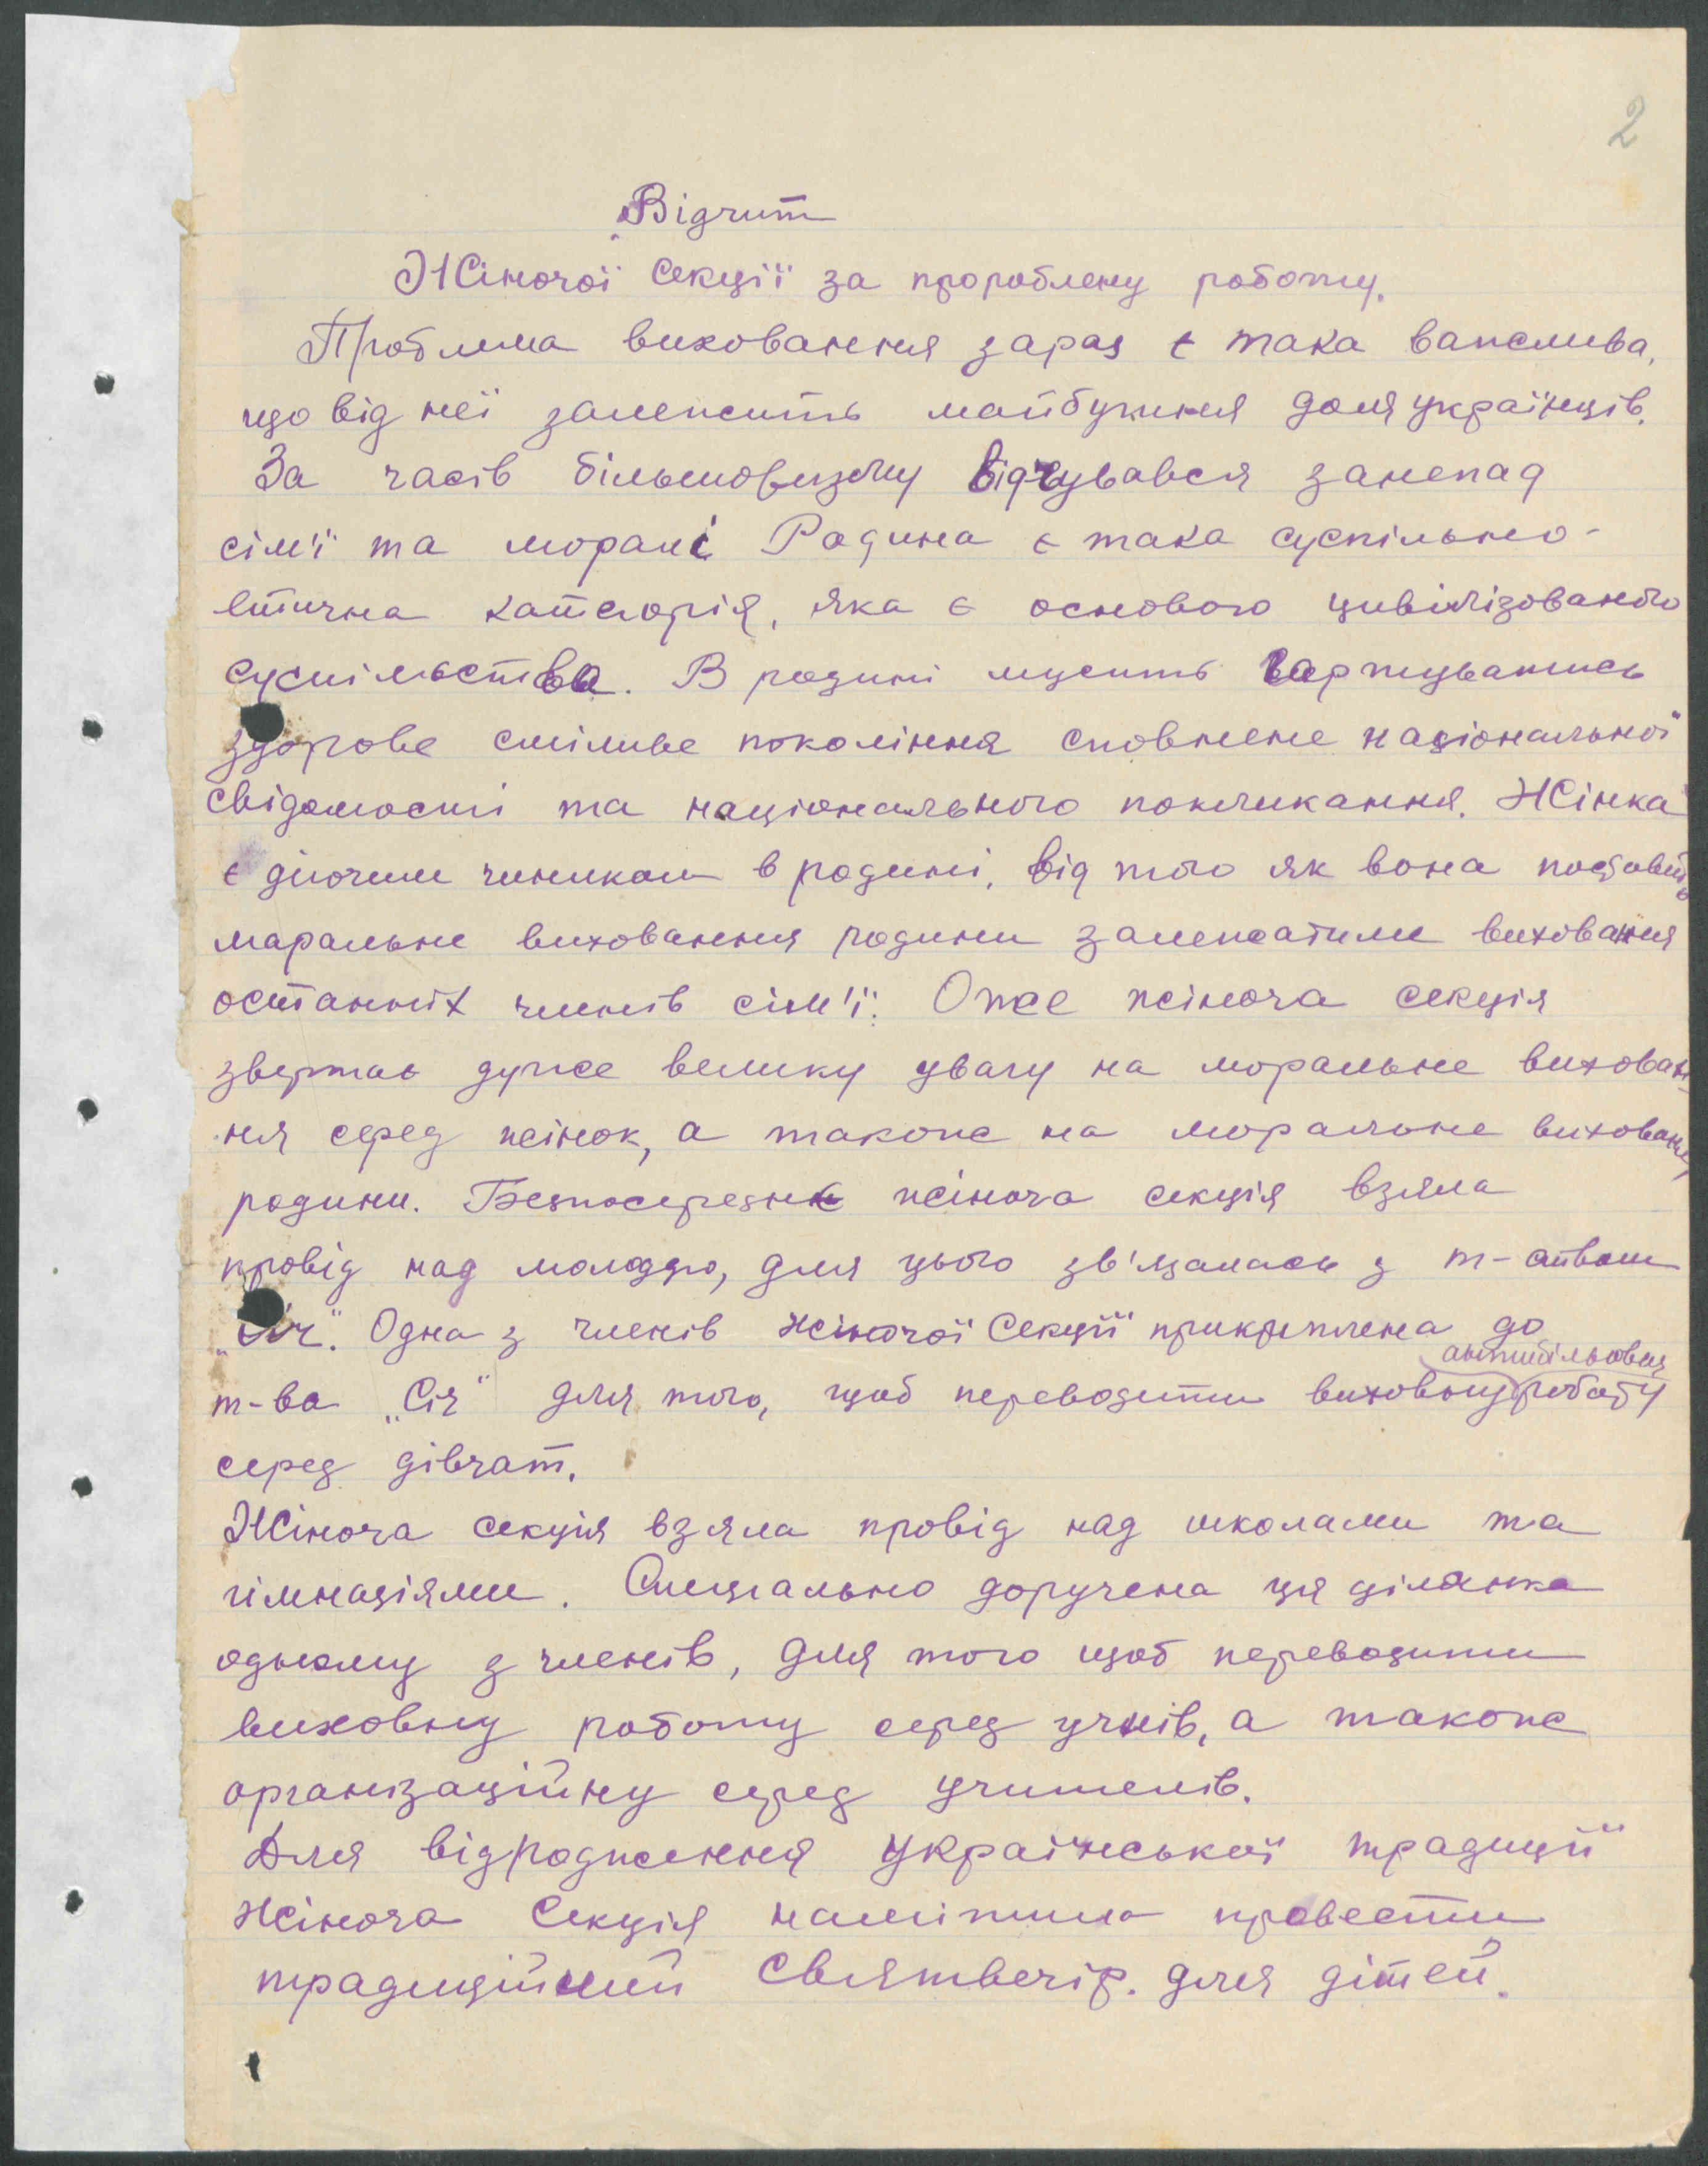 2
Відчит
Жіночої Секції за пророблену роботу.
Проблема виховання зараз є така важлива,
що від неї залежить майбутня доля українців.
За часів більшовизму відчувався занепад
сім'ї та моралі Родина є така суспільно-
етична категорія, яка є основою цивілізованого
суспільства. В родині мусить гартуватись
здорове сміливе покоління сповнене національної
свідомості та національного покликання. Жінка
є діючим чинником в родині, від того як вона поставить
маральне виховання родини залежатиме виховання
останніх членів сім'ї. Отже жіноча секція
звертає дуже велику увагу на моральне вихован-
ня серед жінок, а також на моральне виховання
родини. Безпосереднє жіноча секція взяла
провід над молоддю, для цього зв'язалась з т-ством
„Січ". Одна з членів жіночої Секції прикріплена до
т-ва „Січ" для того, щоб переводити виховну роботу
серед дівчат.
Жіноча секція взяла провід над школами та
гімназіями. Спеціально доручена ця ділянка
одному з членів, для того щоб переводити
виховну роботу серед учнів, а також
організаційну серед учителів.
Для відродження Української традиції
жіноча Секція намітила провести
традиційний Святвечір. для дітей.